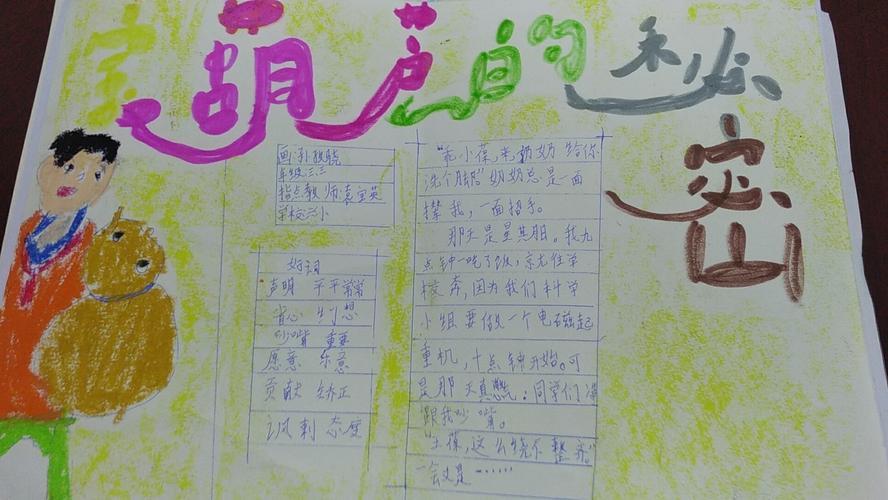 宝葫芦的秘密
画:孙
年级:三.三
指点教师:袁宝英
学校:六小
好词
声明 平平常常
背心 幻想
吵嘴 重要
愿意 乐意
贡献 矫正
讽刺 态度
"乖小葆,来,奶奶给你
洗个脚"奶奶总是一面
撵我,一面招手。
那天是星期日。我九
点钟一吃了饭,就往学
校奔,因为我们科学
小组要做一个电磁起
重机,十点钟开始。可
是那天真憋:同学们净
跟我吵嘴。
"王葆,这么绕不整齐。"
一会又是……